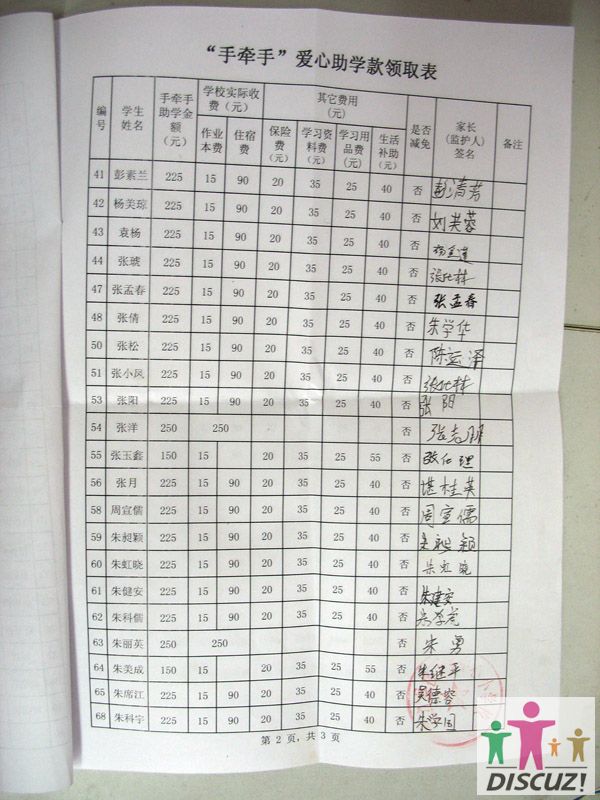 “手牵手”爱心助学款领取表
编号 学生姓名 手牵手助学金额(元) 学校实际收费(元) 其它费用(元) 是否减免 家长(监护人)签名 备注
作业本费 住宿费 保险费(元) 学习资料费(元) 学习用品费(元) 生活补助(元)
41 彭素兰 225 15 90 20 35 25 40 否 彭清芳
42 杨美琼 225 15 90 20 35 25 40 否 刘芙蓉
43 袁杨 225 15 90 20 35 25 40 否
44 张琥 225 15 90 20 35 25 40 否 张仕林
47 张孟春 225 15 90 20 35 25 40 否 张孟春
48 张倩 225 15 90 20 35 25 40 否 朱学华
50 张松 225 15 90 20 35 25 40 否 陈运泽
51 张小凤 225 15 90 20 35 25 40 否 张仕林
53 张阳 225 15 90 20 35 25 40 否 张阳
54 张洋 250 250 否 张志明
55 张玉鑫 150 15 20 35 25 55 否
56 张月 225 15 90 20 35 25 40 否 谌桂英
58 周宣儒 225 15 90 20 35 25 40 否 周宣儒
59 朱昶颖 225 15 90 20 35 25 40 否 朱昶颖
60 朱虹晓 225 15 90 20 35 25 40 否 朱虹晓
61 朱健安 225 15 90 20 35 25 40 否 朱建安
62 朱科儒 225 15 90 20 35 25 40 否
63 朱丽英 250 250 否 朱勇
64 朱美成 150 15 20 35 25 55 否 朱继平
65 朱席江 225 15 90 20 35 25 40 否 吴德容
68 朱科宇 225 15 90 20 35 25 40 否 朱学国
第 2 页，共 3 页
DISCUZ!